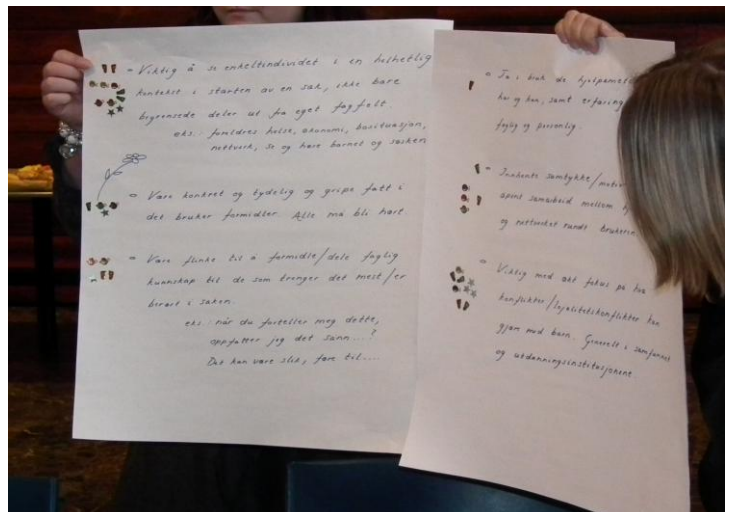 = Viktig å se enkeltindividet i en helhetlig
kontekst i starten av en sak, ikke bare
begrensede deler ut fra eget fagfelt.
eks.: foreldres helse, økonomi, bosituasjon,
nettverk, se og høre barnet og søsken
= Være konkret og tydelig og gripe fatt i
det bruker formidler. Alle må bli hørt
= Være flinke til å formidle/dele faglig
kunnskap til de som trenger det mest/er
berørt i saken.
eks.: når du forteller meg dette,
oppfatter jeg det sånn....?
Det kan være slik, føre til....
= Ta i bruk de
har og kan, samt erfaring
faglig og personlig.
= Innhente samtykke/
åpent samarbeid mellom
og nettverket rundt brukeren
= Viktig med økt fokus på hva
konflikter/lojalitetskonflikter kan
gjøre med barn. Generelt i samfunnet
og utdanningsinstitusjonene.